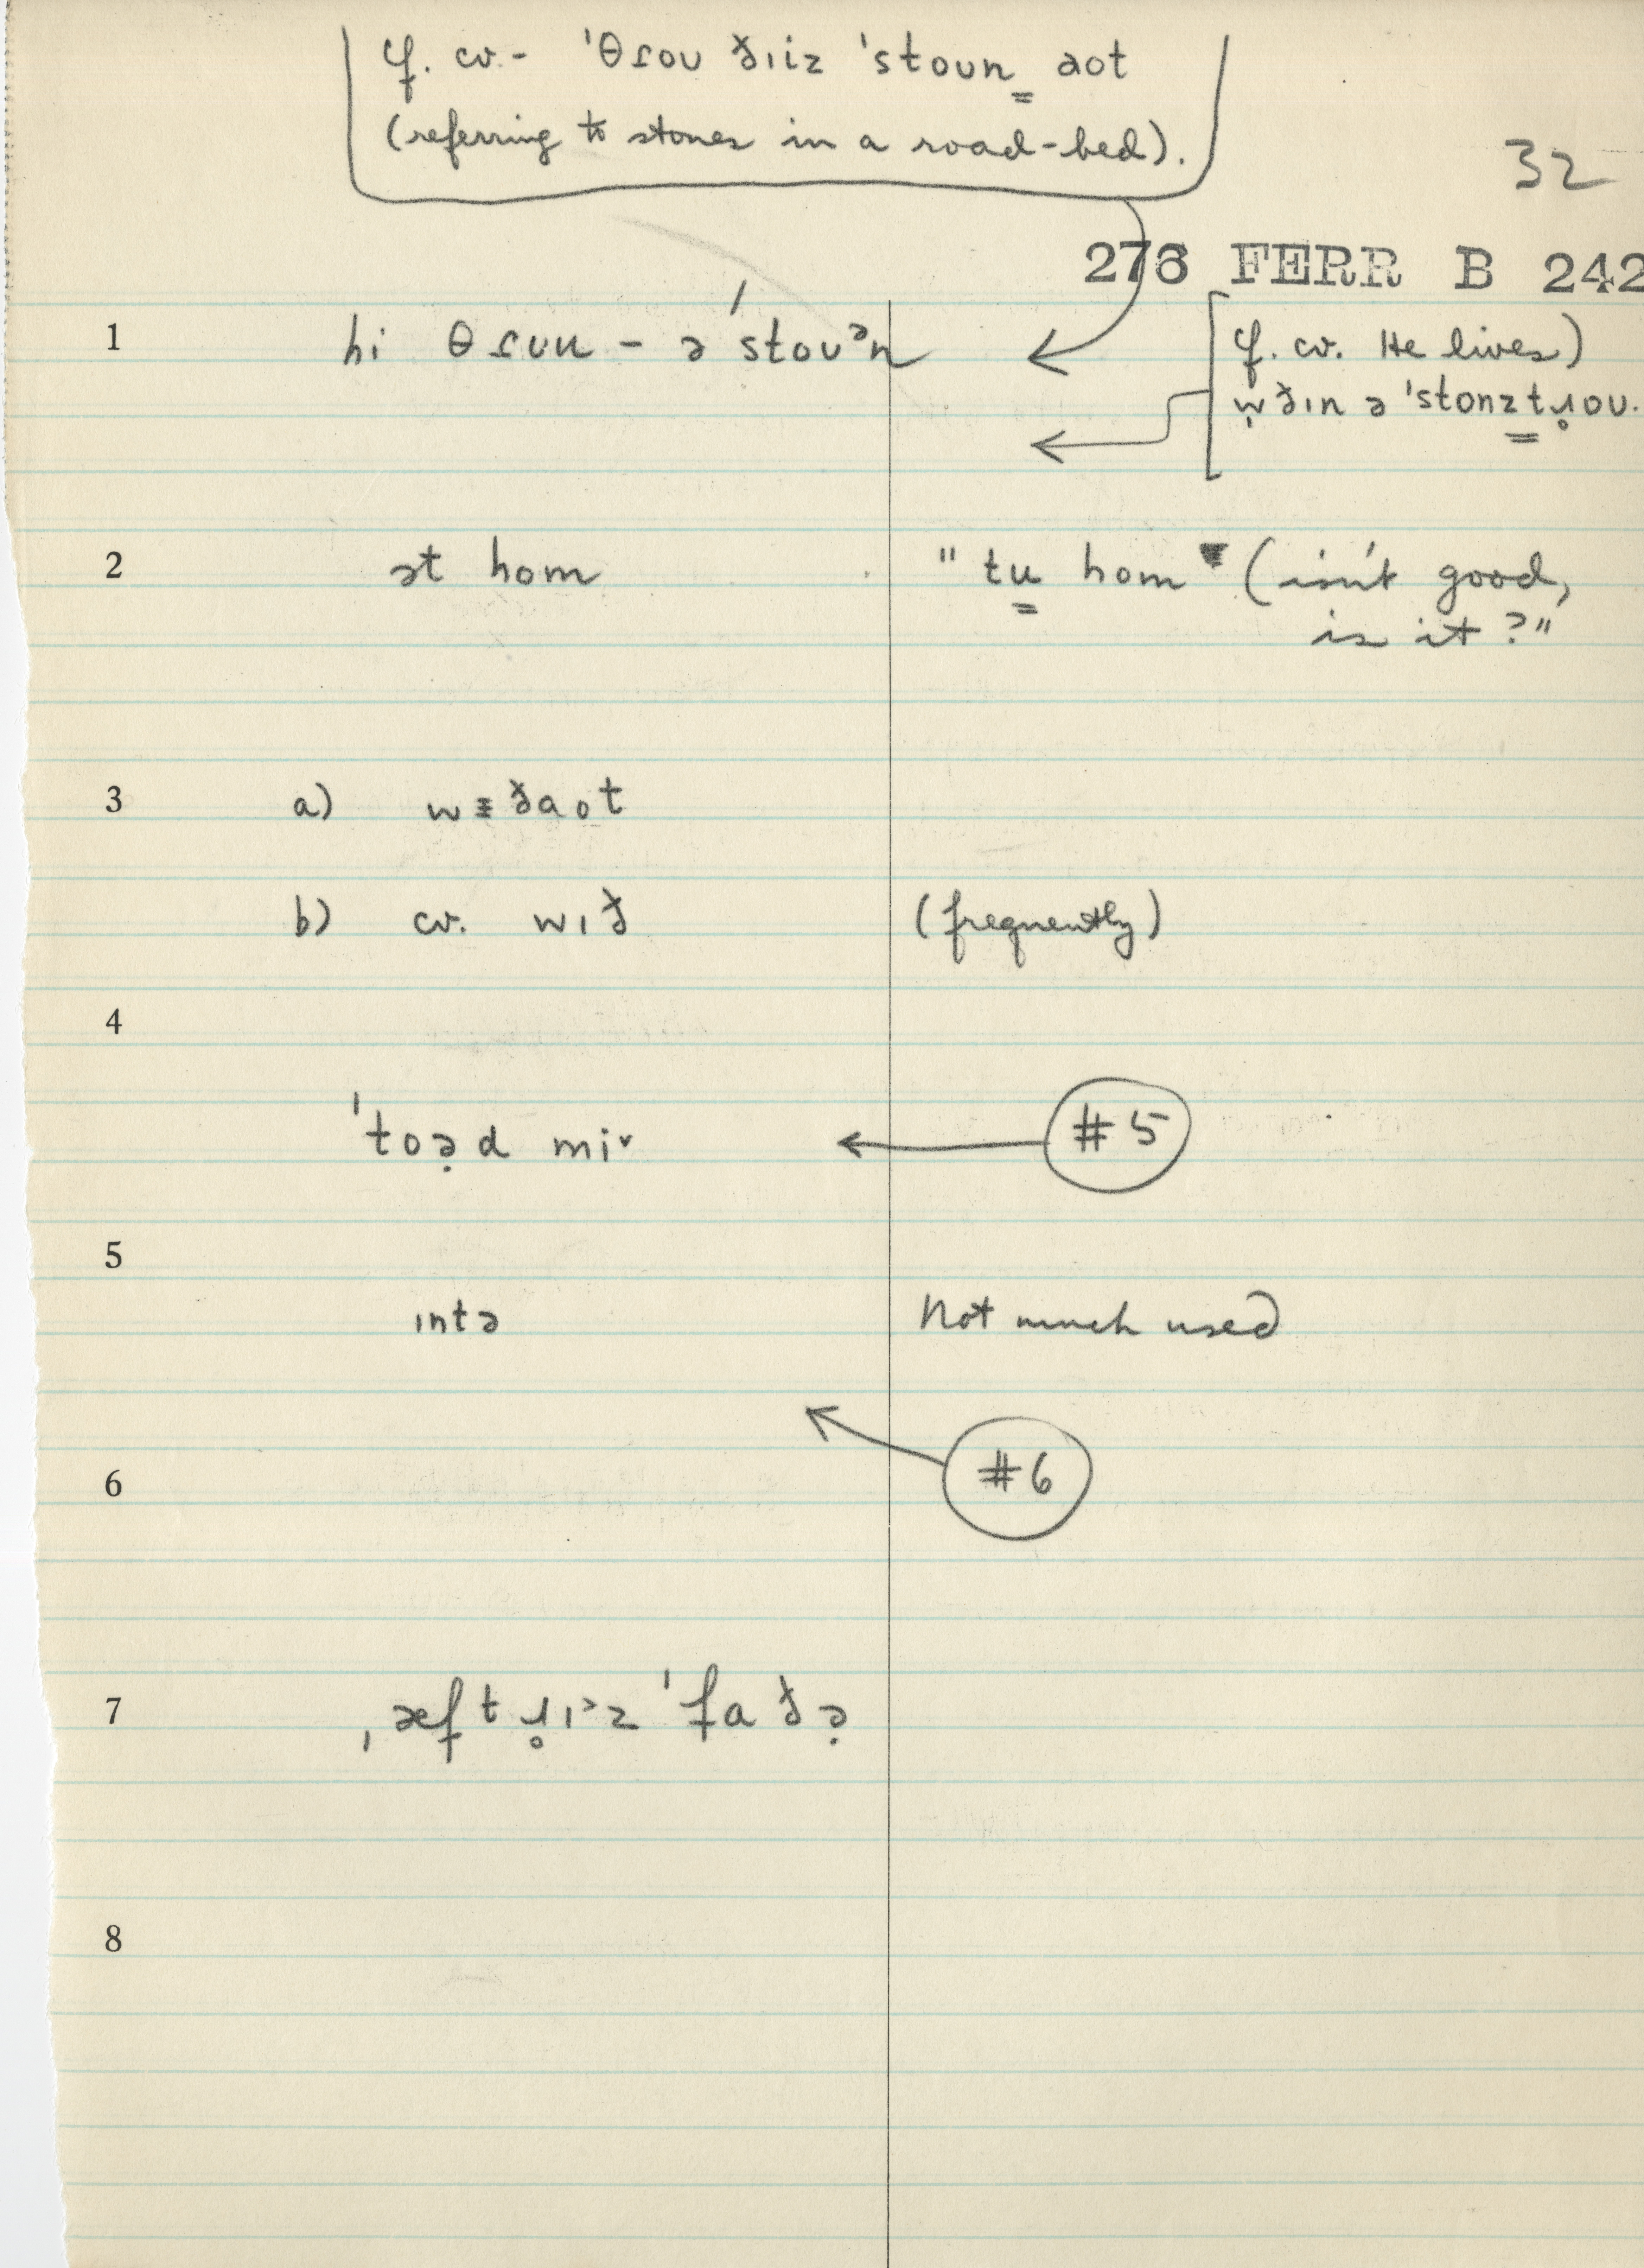 cf. cv.- ˈθɾoʊ ðɪiz ˈstoʊn̳ aot
(referring to stones in a road-bed).
32
276 FERR B 242
1 hi θɾʊu – ə ˈstoʊᵊn
cf. cv. He lives)
wðɪn ə ˈstonz̳t̳ɹ̥oʊ.
2 ət hom "tu̳ hom (isn't good,
is it?"
3 a) wɪ̵ðaot
b) cv. wɪð (frequently)
4
ˈtoə̣d mi˅ #5
5
ɪntə Not much used
#6
6
7 ˌæftɹ̥ɪ˃z ˈfaðə̣
8